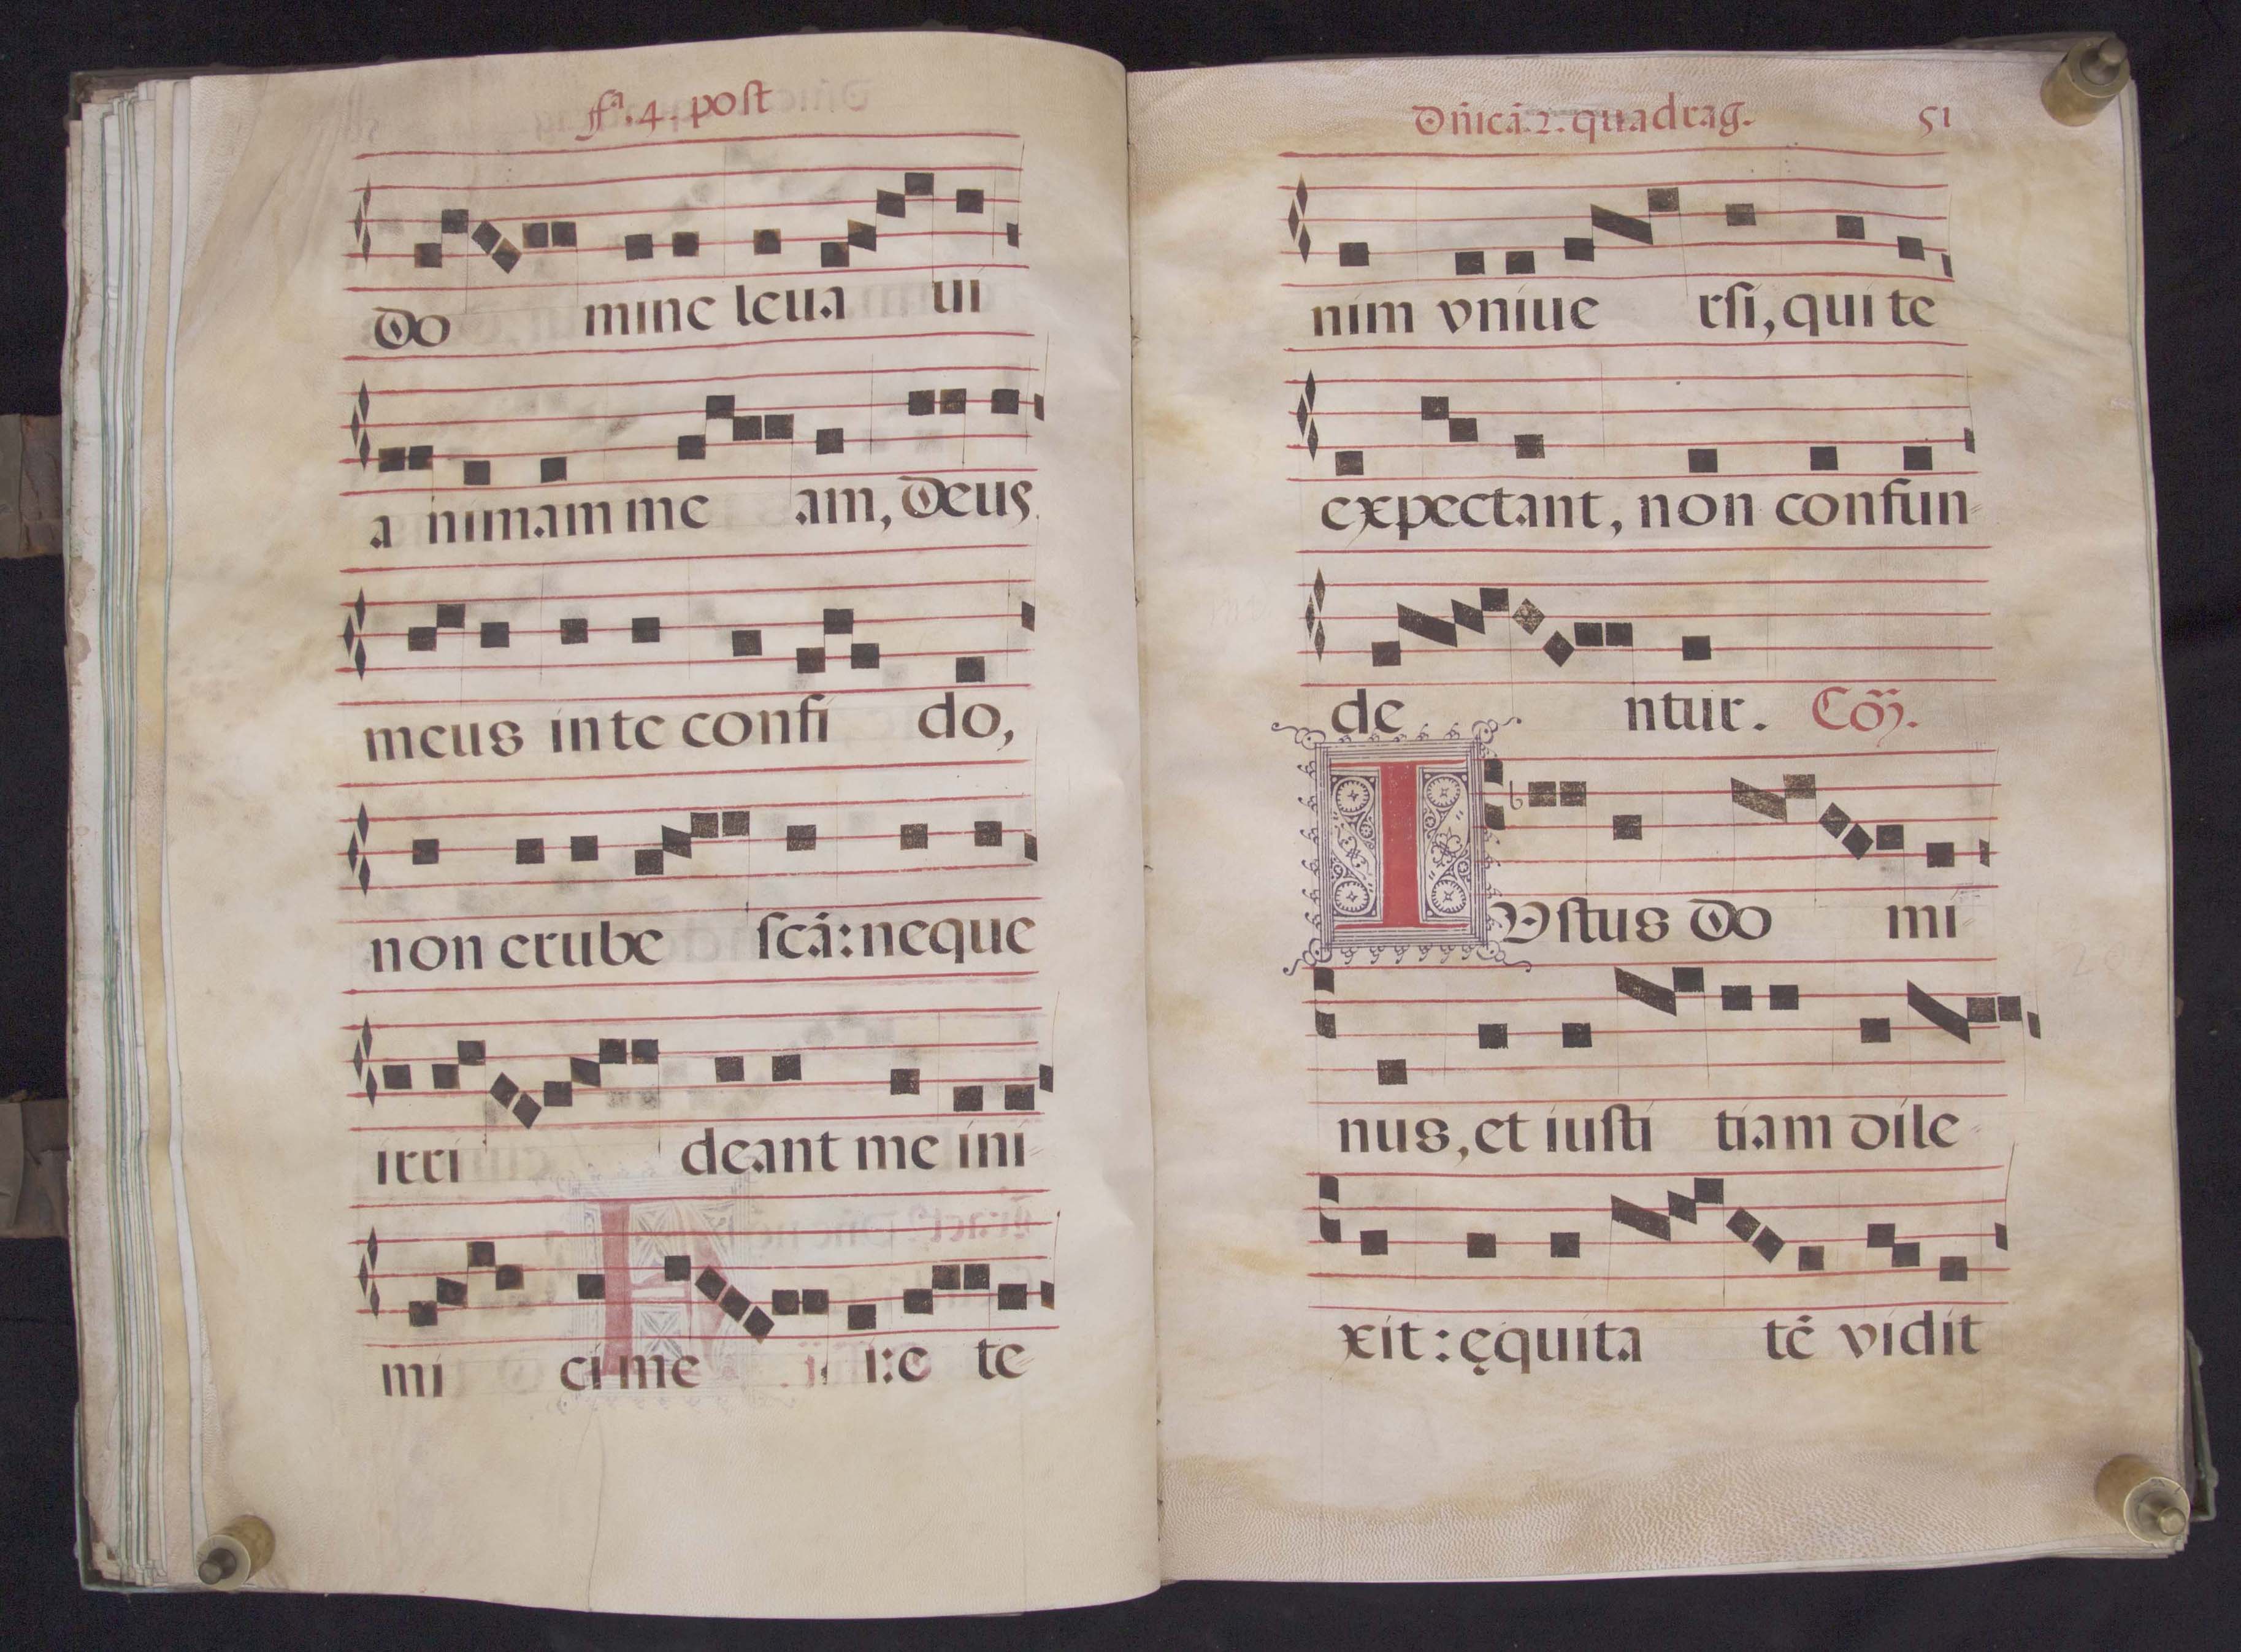 ffª.4. post
Do mine leua ui
a nimam me am, Deus
meus in te confi do,
non erube scā: neque
irri deant me ini-
mi ci me i: e te-
Dñicā.2. quadrag. 51
nim vniue rsi, qui te
expectant, non confun-
de ntur. Cō.
IVstus Do mi-
nus, et iusti tiam dile-
xit: ęquita tē vidit